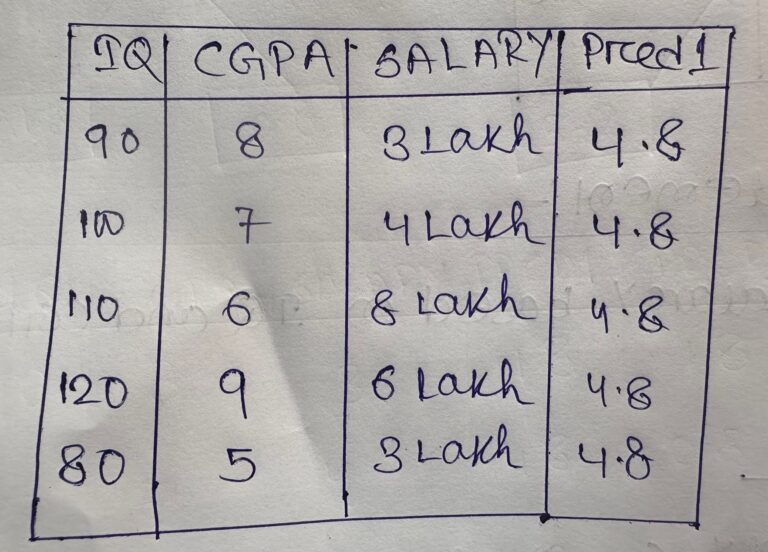 IQ CGPA SALARY Pred1
90 8 3 Lakh 4.8
100 7 4 Lakh 4.8
110 6 8 Lakh 4.8
120 9 6 Lakh 4.8
80 5 3 Lakh 4.8